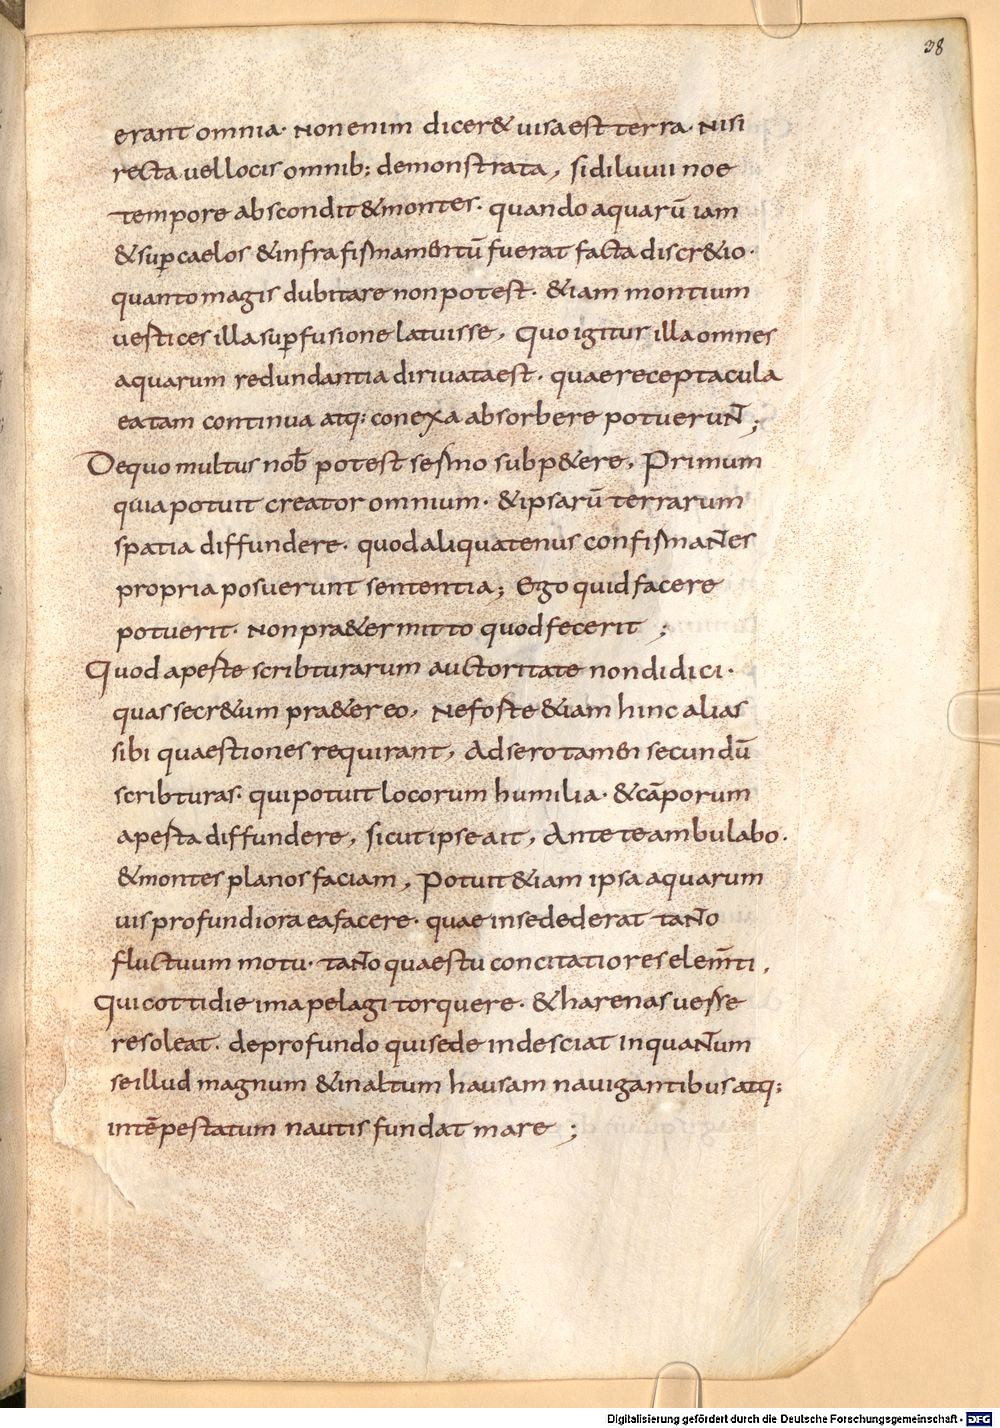 38
erant omnia. Non enim dicer& uisa est terra. Nisi
recta uel locis omnib; demonstrata, si diluuii noe
tempore abscondit & montes. quando aquarū iam
& sup caelos & infra firmamentū fuerat facta discr&io.
quanto magis dubitare non potest. &iam montium
uertices illa supfusione latuisse, Quo igitur illa omnes
aquarum redundantia diriuata est. quae receptacula
ea tam continua atq; conexa absorbere potuerunt̄;
De quo multus nob̄ potest sermo subp&ere, Primum
quia potuit creator omnium. & ipsarū terrarum
spatia diffundere. quod aliquatenus confirmantes
propria posuerunt sententia; Ego quid facere
potuerit. Non pra&ermitto quod fecerit ;
Quod aperte scribturarum auctoritate non didici.
quas secr&um pra&ereo, Ne forte &iam hinc alias
sibi quaestiones requirant, Adsero tamen secundū
scribturas. qui potuit locorum humilia. & cāporum
aperta diffundere, sicut ipse ait, Ante te ambulabo.
& montes planos faciam, Potuit &iam ipsa aquarum
uis profundiora ea facere. quae insedederat tanto
fluctuum motu. tanto quaestu concitatiores elem̄ti,
Qui cottidie ima pelagi torquere. & harenas uerre
re soleat. de profundo qui sede indesciat inquantum
se illud magnum & inaltum hausam nauigantibus atq;
intēpestatum nautis fundat mare ;
Digitalisierung gefördert durch die Deutsche Forschungsgemeinschaft - DFG